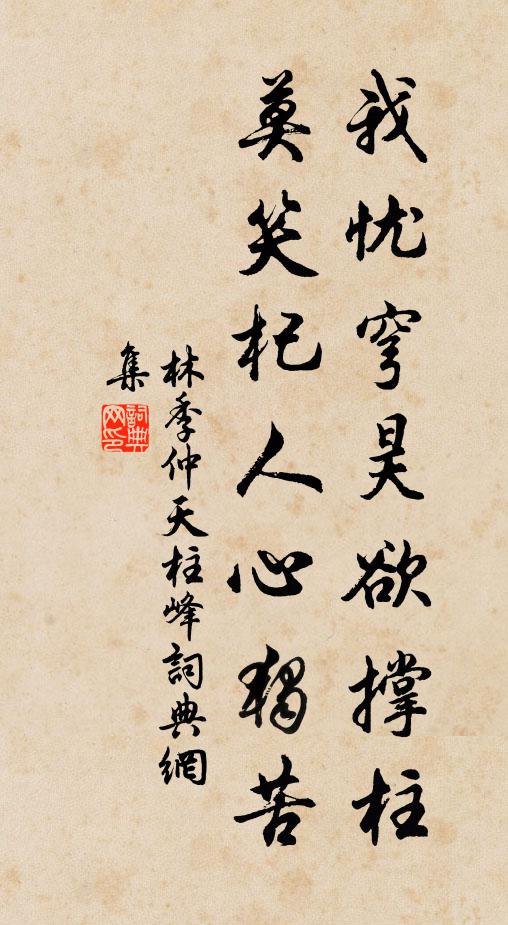 我忧穹昊欲撑柱
莫笑杞人心独苦
林季仲天柱峰詞典網
集
詞典网印